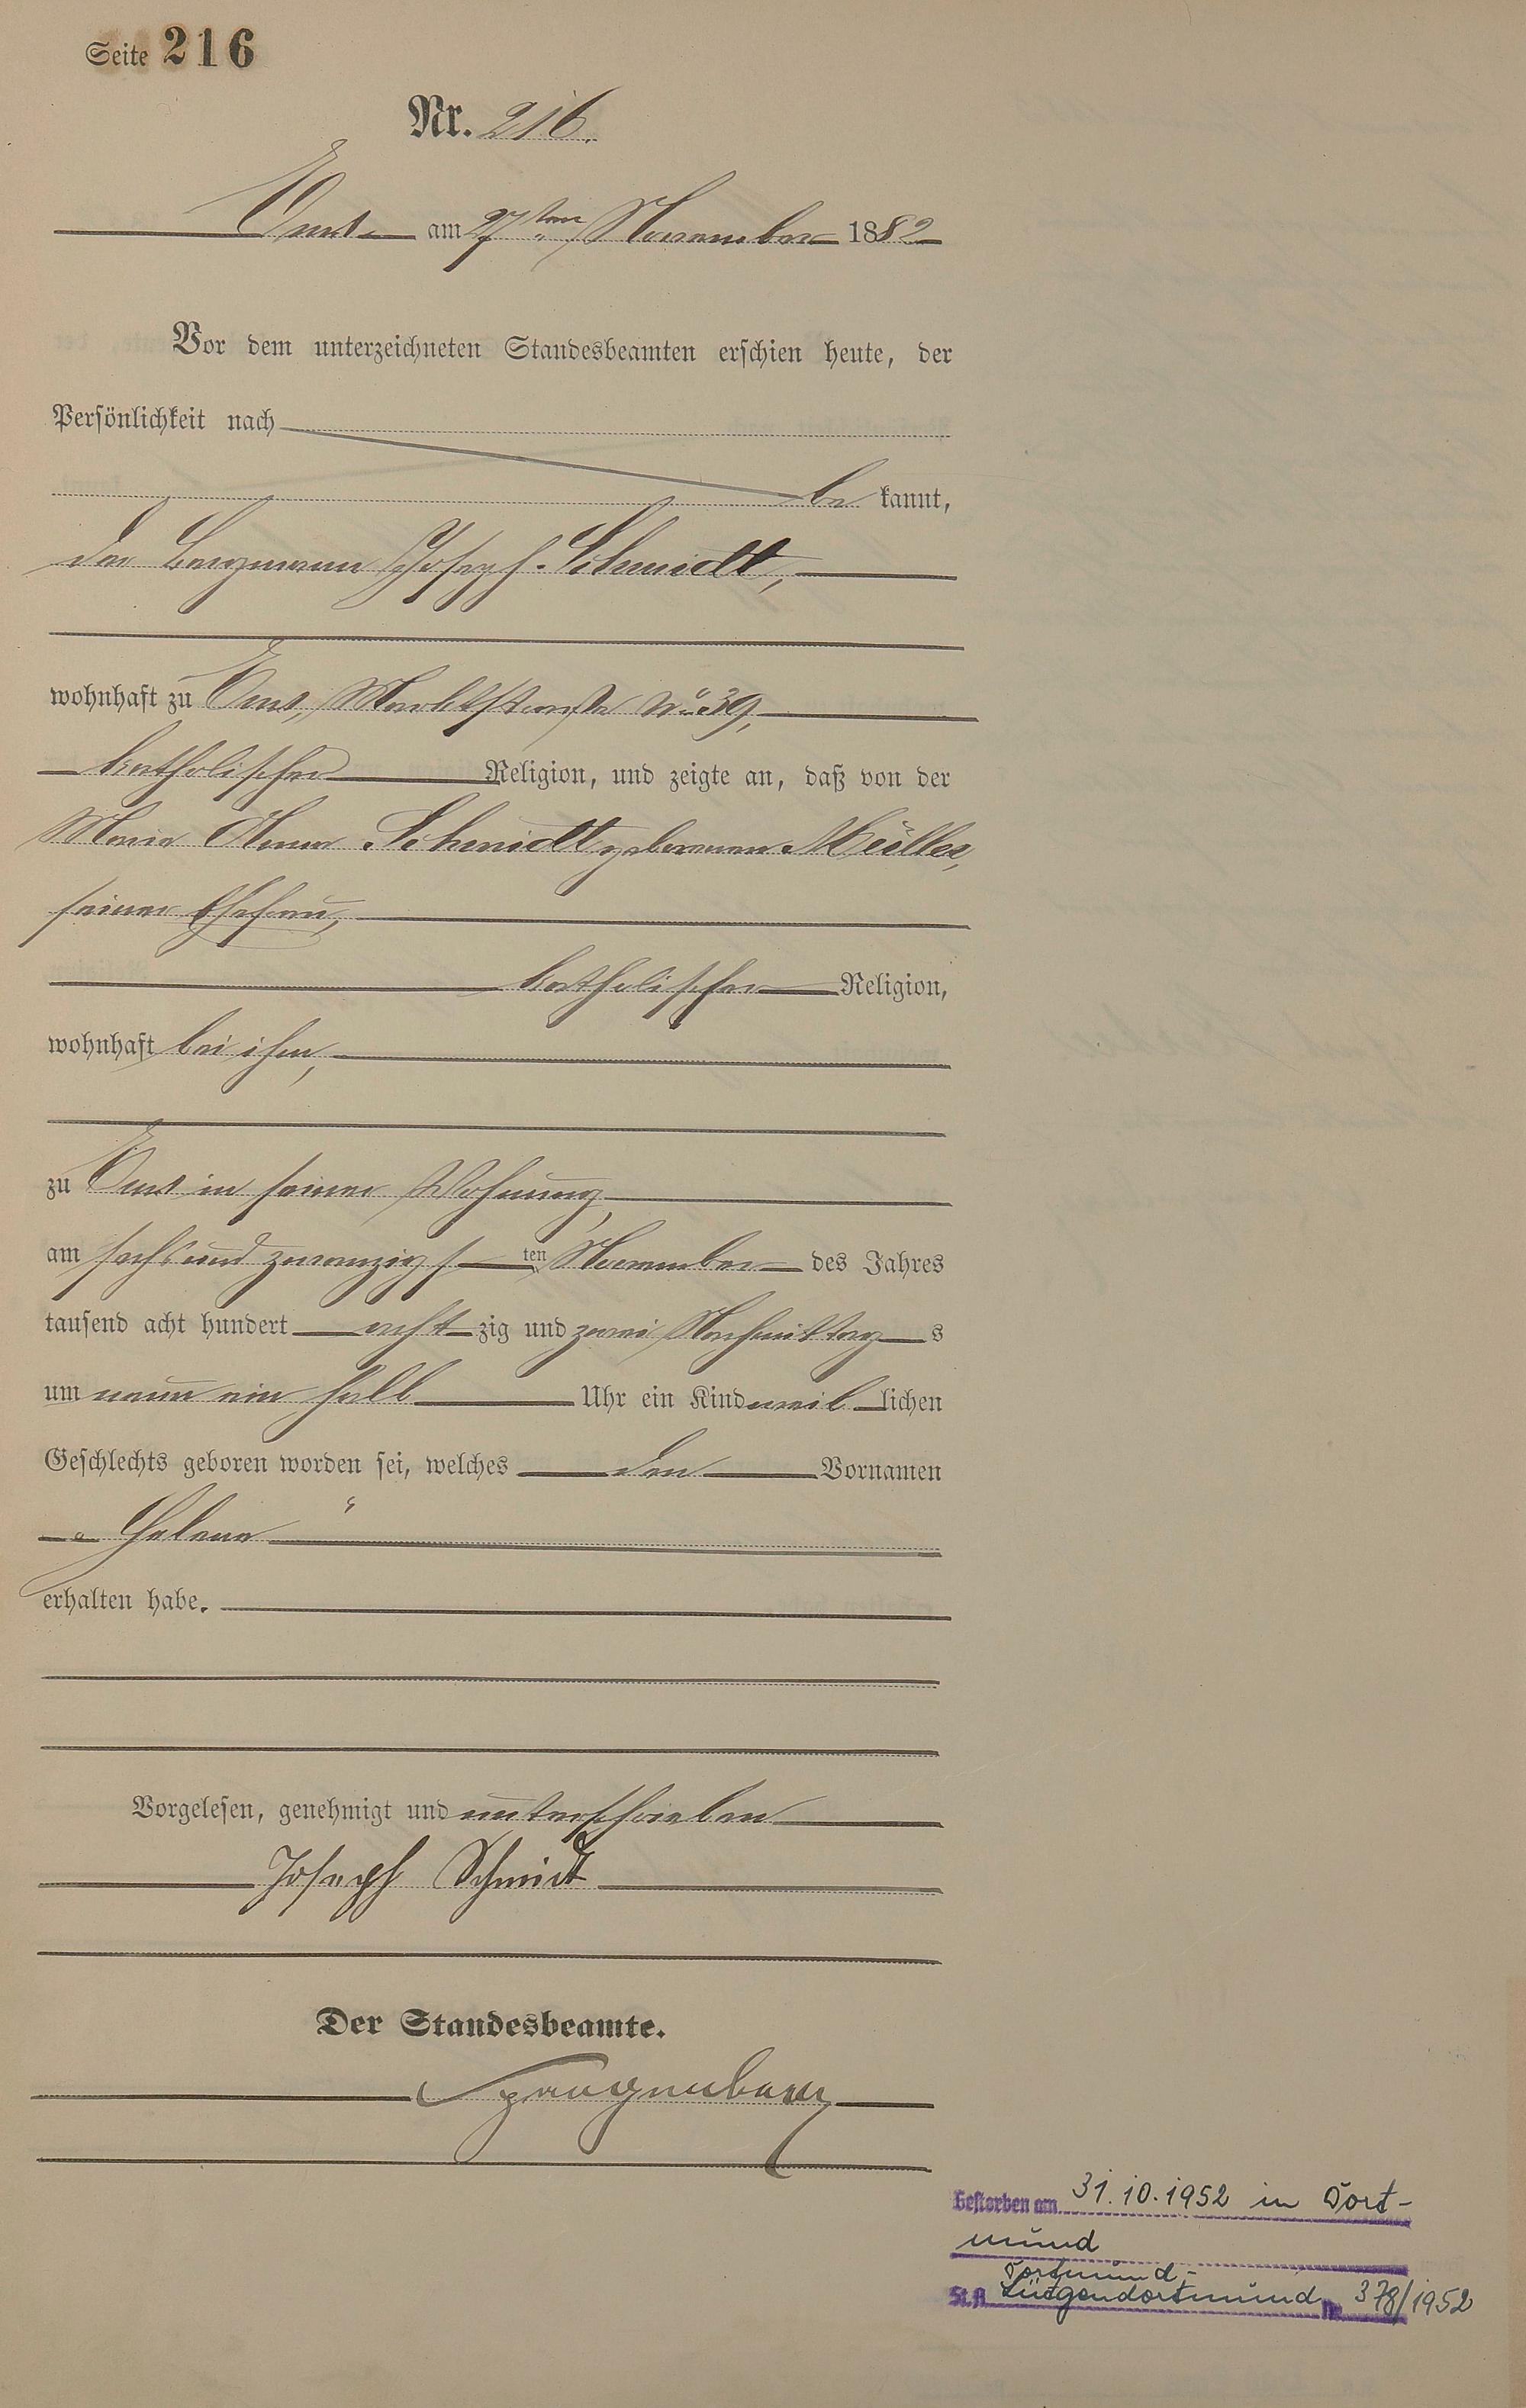 Seite 216
Nr. 216.
Ems am 27ten November 1882
Vor dem unterzeichneten Standesbeamten erschien heute, der
Persönlichkeit nach
be kannt,
der Bergmann Joseph Schmidt,
wohnhaft zu Ems, Marktstraße No 39,
katholischer Religion, und zeigte an, daß von der
Maria Anna Schmidt geborenen Müller,
seiner Ehefrau,
katholischer Religion,
wohnhaft bei ihm,
zu Ems in seiner Wohnung,
am sechs und zwanzigsten November des Jahres
tausend acht hundert achtzig und zwei Nachmittags
um neun ein halb Uhr ein Kind weiblichen
Geschlechts geboren worden sei, welches den Vornamen
„Helena“
erhalten habe.
Vorgelesen, genehmigt und unterschrieben
Joseph Schmidt
Der Standesbeamte.
Gestorben am 31.10.1952 in Dort-
mund
Dortmund-
St.A. Lütgendortmund Nr. 378/1952